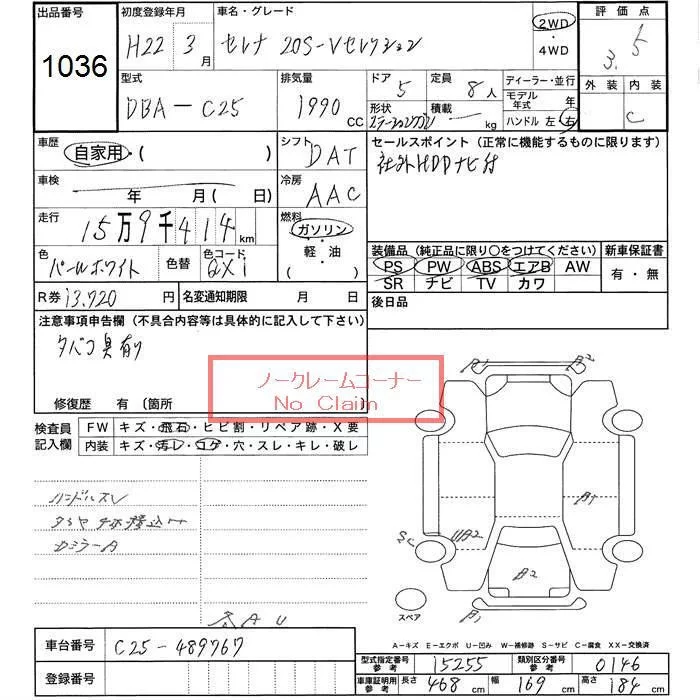 出品番号 初度登録年月 車名・グレード 評価点
1036 H22 3月 セレナ 20S-Vセレクション 2WD・4WD 3.5
型式 排気量 ドア 定員 ディーラー・並行 外装 内装
DBA-C25 1990CC 5 8人 モデル年式 年 C
形状 ステーションワゴン 積載 kg ハンドル 左・右
車歴 シフト セールスポイント (正常に機能するものに限ります)
自家用・( ) DAT 社外HDDナビ付
車検 年 月( 日) 冷房 AAC
走行 燃料
15万9千414km ガソリン・軽・油( )
色 パールホワイト 色替 色コード QX1
装備品(純正品に限り○をつけてください) 新車保証書
PS PW ABS エアB AW 有・無
SR ナビ TV カワ
R券 13,920円 名変通知期限 月 日 後日品
注意事項申告欄 (不具合内容等は具体的に記入して下さい)
タバコ臭有り
ノークレームコーナー
No Claim
修復歴 有 〔箇所
検査員記入欄 FW キズ・飛石・ヒビ割・リペア跡・X要
内装 キズ・汚レ・コゲ・穴・スレ・キレ・破レ
ハンドルスレ
カミラーA
A1 A2
A1
SC UA2
B2
スペア A1
A-キズ E-エクボ U-凹み W-補修跡 S-サビ C-腐食 XX-交換済
車台番号 C25-489767
登録番号
型式指定番号 参考 15255 類別区分番号 参考 0146
車庫証明用 参考 長さ 468cm 幅 169cm 高さ 184cm